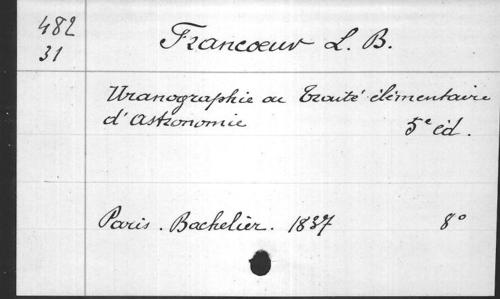 482
31
Francoeur L. B.
Uranographie ou Traité élémentaire
d'Astronomie 5e éd.
Paris. Bachelier. 1837 8°